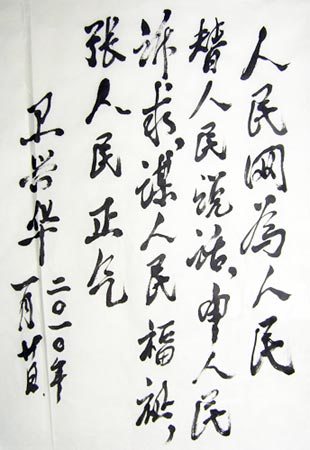 人民网为人民
替人民说话，申人民
诉求，谋人民福祉，
张人民正气
卫兴华
二〇一〇年
一月廿日